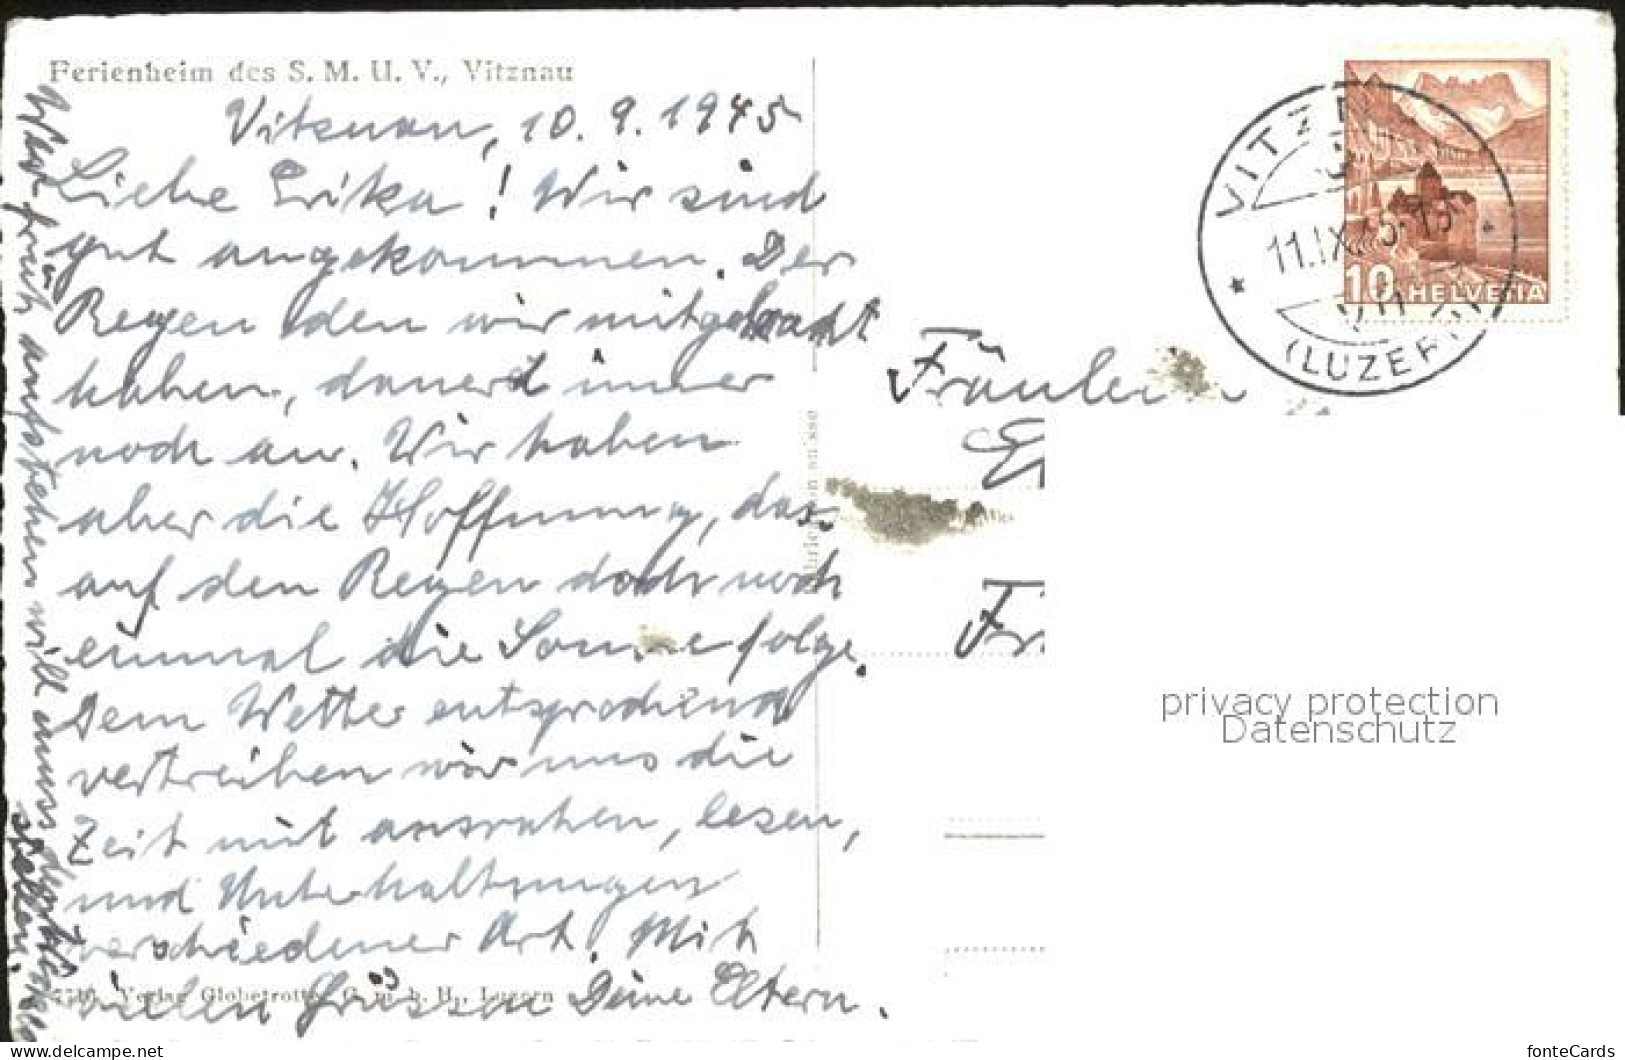 Ferienheim des S. M. U. V., Vitznau
Vitznau, 10. 9. 1945
Liebe Erika! Wir sind
gut angekommen. Der
Regen den wir mitgebracht
haben, dauerd immer
noch an. Wir haben
aber die Hoffnung, das
auf den Regen doch noch
einmal die Sonne folge.
Dem Wetter entsprechend
vertreiben wir uns die
Zeit mit ausruhen, lesen,
und Unterhaltungen
verschiedener Art. Mit
vielen Grüssen Deine Eltern.
Wer früh aufstehen will muss
stellen.
Verlag Globetrotter G. m. b. H., Luzern
VITZN
11.IX
(LUZERN)
10 HELVETIA
Fräulein
privacy protection
Datenschutz
http://www.ansichtskarten-center.de/
fonteCards